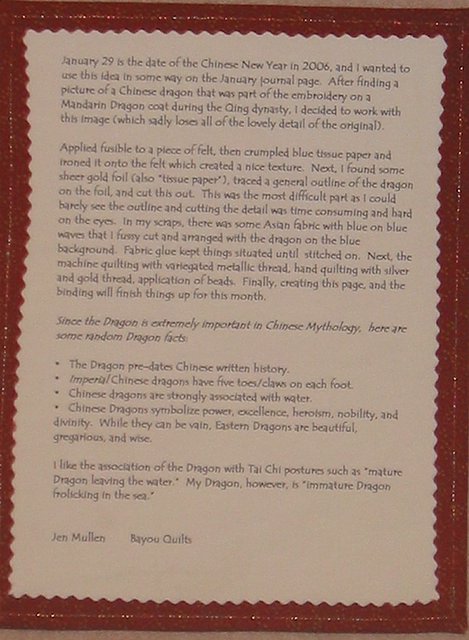 January 29 is the date of the Chinese New Year in 2006, and I wanted to
use this idea in some way on the January journal page. After finding a
picture of a Chinese dragon that was part of the embroidery on a
Mandarin Dragon coat during the Qing dynasty, I decided to work with
this image (which sadly loses all of the lovely detail of the original).
Applied fusible to a piece of felt, then crumpled blue tissue paper and
ironed it onto the felt which created a nice texture. Next, I found some
sheer gold foil (also "tissue paper"), traced a general outline of the dragon
on the foil, and cut this out. This was the most difficult part as I could
barely see the outline and cutting the detail was time consuming and hard
on the eyes. In my scraps, there was some Asian fabric with blue on blue
waves that I fussy cut and arranged with the dragon on the blue
background. Fabric glue kept things situated until stitched on. Next, the
machine quilting with variegated metallic thread, hand quilting with silver
and gold thread, application of beads. Finally, creating this page, and the
binding will finish things up for this month.
Since the Dragon is extremely important in Chinese Mythology, here are
some random Dragon facts:
• The Dragon pre-dates Chinese written history.
• Imperial Chinese dragons have five toes/claws on each foot.
• Chinese dragons are strongly associated with water.
• Chinese Dragons symbolize power, excellence, heroism, nobility, and
divinity. While they can be vain, Eastern Dragons are beautiful,
gregarious, and wise.
I like the association of the Dragon with Tai Chi postures such as "mature
Dragon leaving the water." My Dragon, however, is "immature Dragon
frolicking in the sea."
Jen Mullen Bayou Quilts